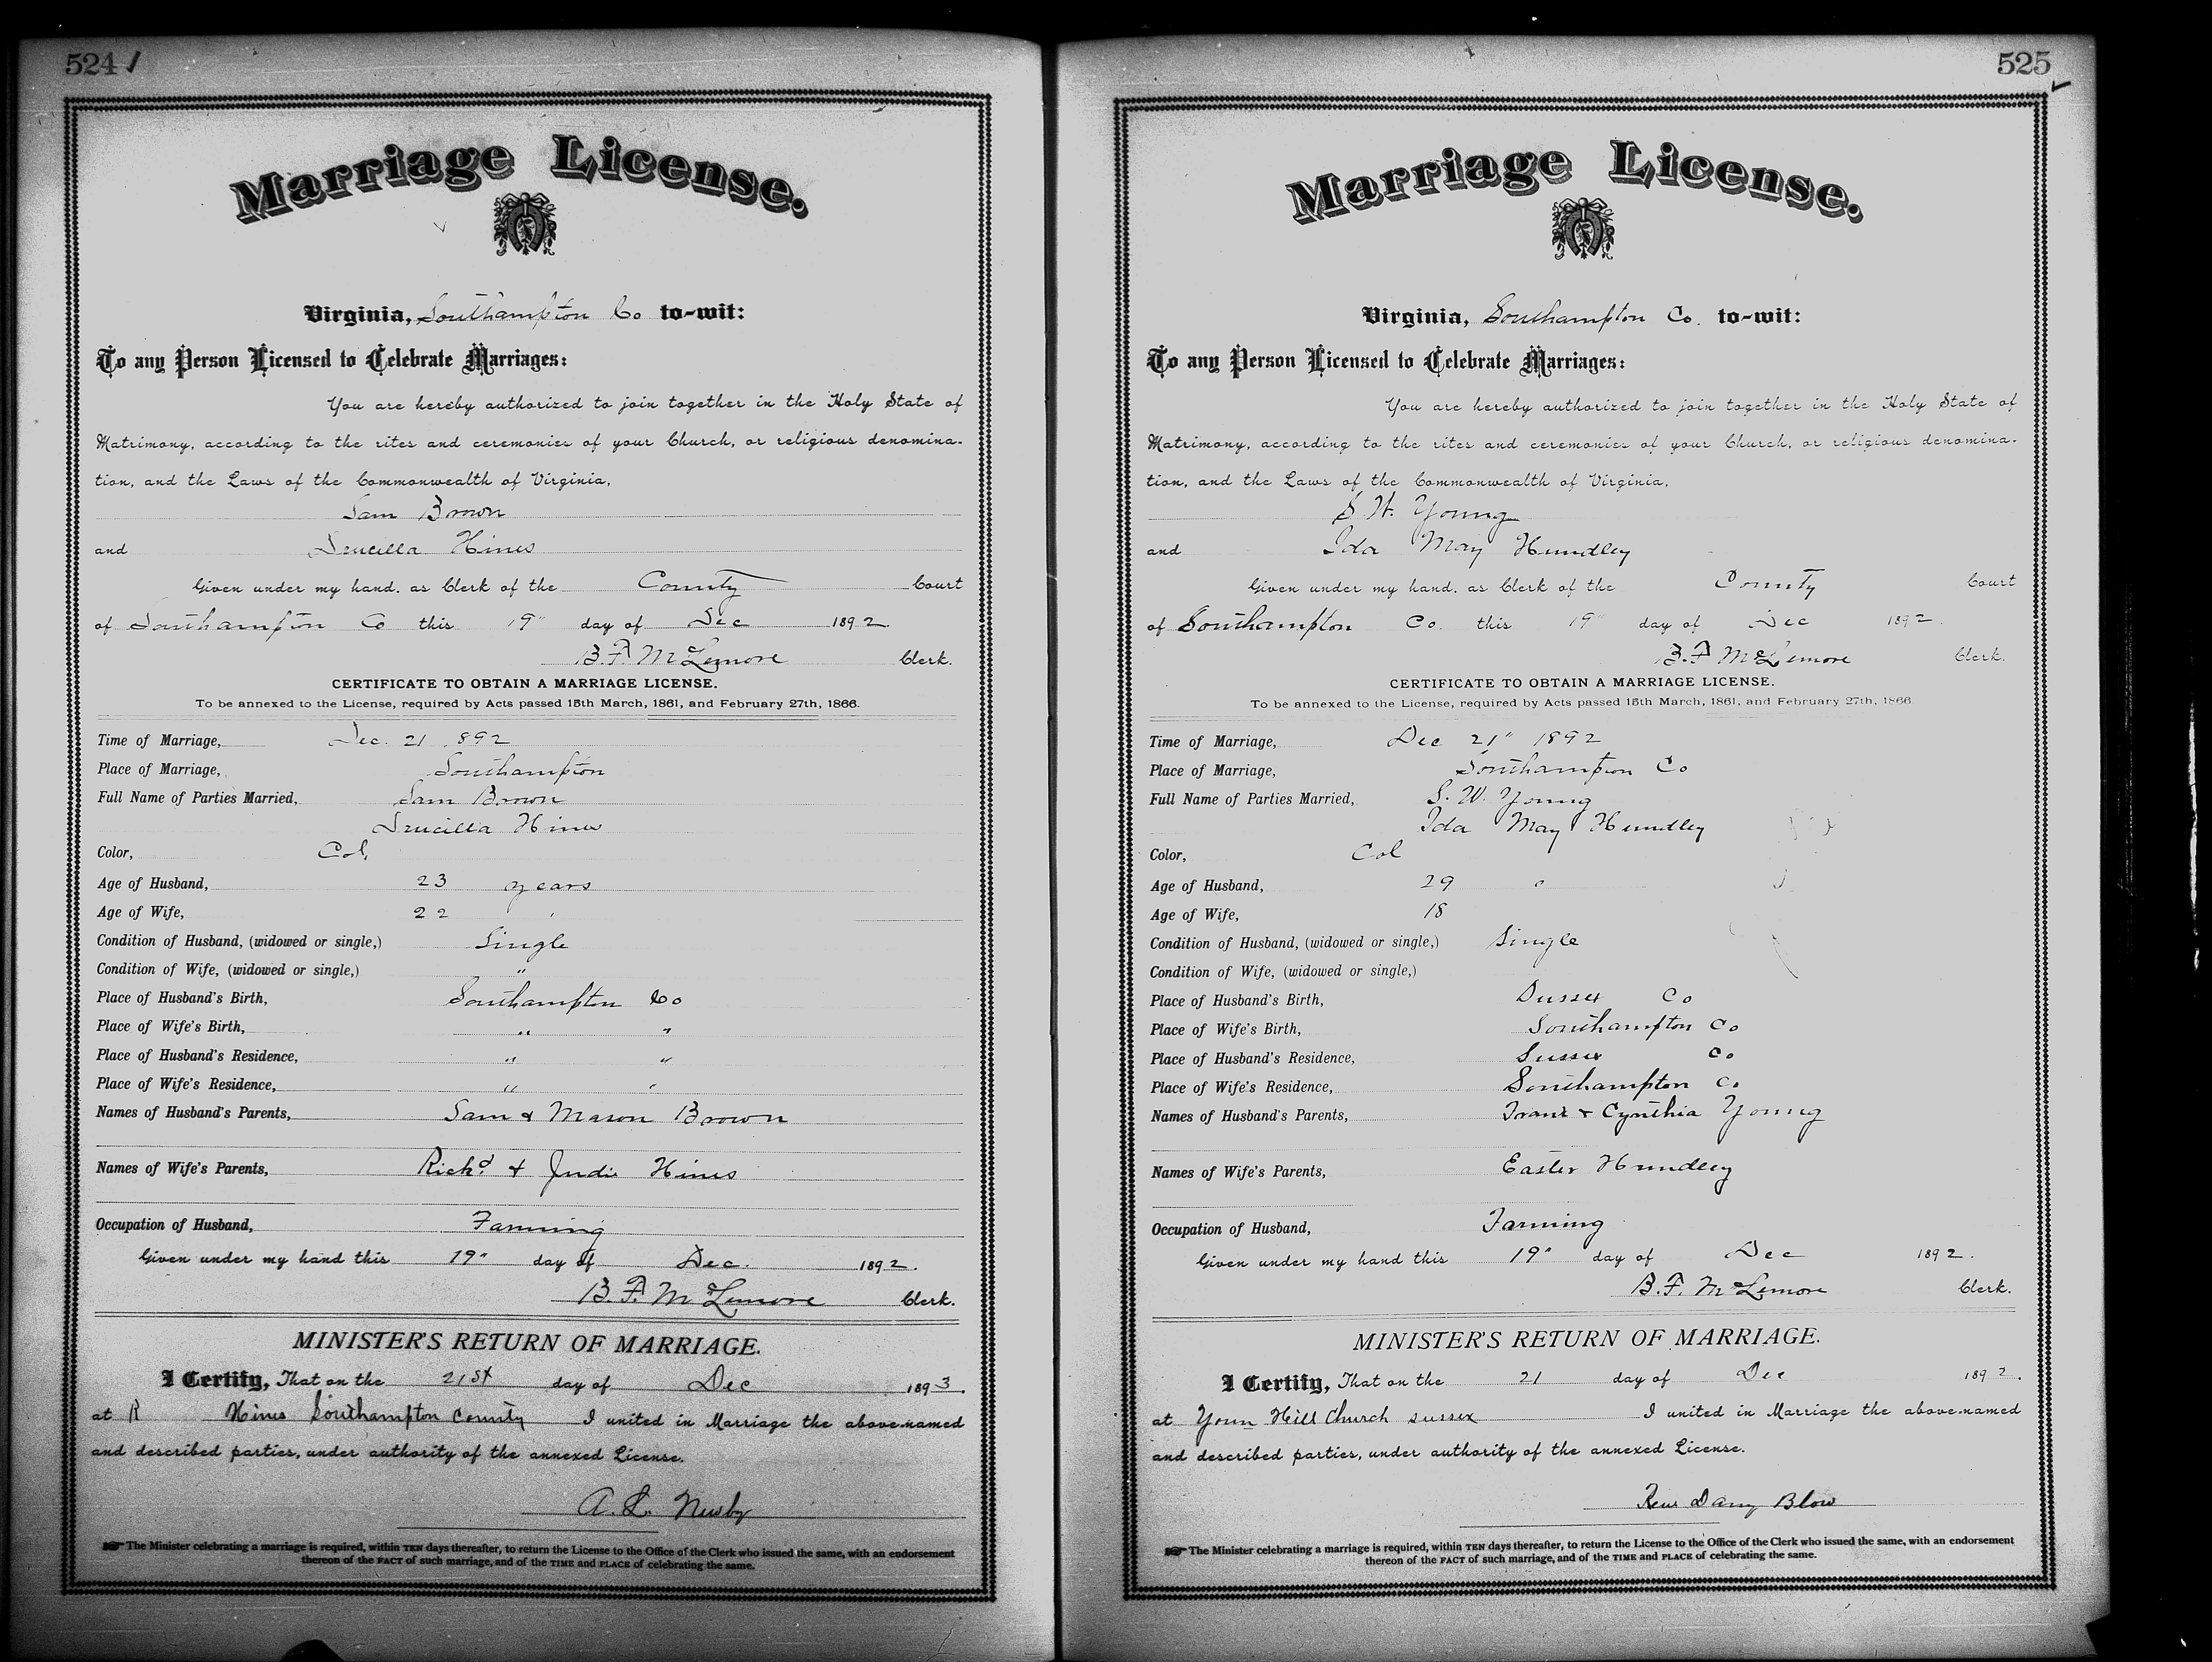 524
Marriage License.
Virginia, Southampton Co to-wit:
To any Person Licensed to Celebrate Marriages:
You are hereby authorized to join together in the Holy State of
Matrimony, according to the rites and ceremonies of your Church, or religious denomina-
tion, and the Laws of the Commonwealth of Virginia,
Sam Brown
and Drucilla Hines
Given under my hand, as Clerk of the County Court
of Southampton Co this 19" day of Dec 1892.
B. F. McLemore Clerk.
CERTIFICATE TO OBTAIN A MARRIAGE LICENSE.
To be annexed to the License, required by Acts passed 15th March, 1861, and February 27th, 1866.
Time of Marriage, Dec. 21 1892
Place of Marriage, Southampton
Full Name of Parties Married, Sam Brown
Drucilla Hines
Color, Col.
Age of Husband, 23 years
Age of Wife, 22 "
Condition of Husband, (widowed or single,) Single
Condition of Wife, (widowed or single,) "
Place of Husband's Birth, Southampton Co
Place of Wife's Birth, " "
Place of Husband's Residence, " "
Place of Wife's Residence, " "
Names of Husband's Parents, Sam & Mason Brown
Names of Wife's Parents, Richd. & Judie Hines
Occupation of Husband, Farming
Given under my hand this 19" day of Dec. 1892.
B. F. McLemore Clerk.
MINISTER'S RETURN OF MARRIAGE.
I Certify, That on the 21st day of Dec 1893.
at R Hines Southampton County I united in Marriage the above-named
and described parties, under authority of the annexed License.
A. L. Newby
The Minister celebrating a marriage is required, within TEN days thereafter, to return the License to the Office of the Clerk who issued the same, with an endorsement
thereon of the FACT of such marriage, and of the TIME and PLACE of celebrating the same.
525
Marriage License.
Virginia, Southampton Co. to-wit:
To any Person Licensed to Celebrate Marriages:
You are hereby authorized to join together in the Holy State of
Matrimony, according to the rites and ceremonies of your Church, or religious denomina-
tion, and the Laws of the Commonwealth of Virginia,
S. W. Young
and Ida May Hundley
Given under my hand, as Clerk of the County Court
of Southampton Co. this 19" day of Dec 1892.
B. F. McLemore Clerk.
CERTIFICATE TO OBTAIN A MARRIAGE LICENSE.
To be annexed to the License, required by Acts passed 15th March, 1861, and February 27th, 1866
Time of Marriage, Dec 21" 1892
Place of Marriage, Southampton Co
Full Name of Parties Married, S. W. Young
Ida May Hundley
Color, Col
Age of Husband, 29 "
Age of Wife, 18
Condition of Husband, (widowed or single,) Single
Condition of Wife, (widowed or single,)
Place of Husband's Birth, Sussex Co
Place of Wife's Birth, Southampton Co
Place of Husband's Residence, Sussex Co
Place of Wife's Residence, Southampton Co
Names of Husband's Parents, & Cynthia Young
Names of Wife's Parents, Easter Hundley
Occupation of Husband, Farming
Given under my hand this 19" day of Dec 1892.
B. F. McLemore Clerk.
MINISTER'S RETURN OF MARRIAGE.
I Certify, That on the 21 day of Dec 1892.
at Youn Hill Church sussex I united in Marriage the above-named
and described parties, under authority of the annexed License.
Rev Blow
The Minister celebrating a marriage is required, within TEN days thereafter, to return the License to the Office of the Clerk who issued the same, with an endorsement
thereon of the FACT of such marriage, and of the TIME and PLACE of celebrating the same.